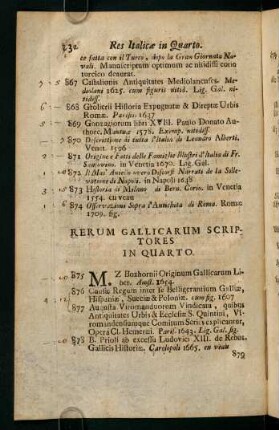 232 Res Italicæ in Quarto.
et fatta con il Turco, dopo la Gran Giornata Na-
vali. Manuscriptum optimum ac nitidiss. corio
turcico deaurat.
867 Castalionis Antiquitates Mediolanenses. Me-
diolani 1625. cum figuris nitid. Lig. Gal. ni-
tidiss.
868 Grolierii Historia Expugnatæ & Direptæ Urbis
Romæ. Parisiis 1637
869 Gonzagiorum libri XVIII. Patio Donato Au-
thore, Mantuæ 1578. Exemp. nitidiss.
870 Descrittione di tutta l'Italia di Leandro Alberti,
Venet. 1596
871 Origine e Fatti delle Famiglie Illustri d'Italia di Fr.
Sansovino. in Venetia 1670. Lig. Gal.
872 Il Mas' Aniello overo Discorsi Narrati de la Solle-
vatione di Napoli. in Napoli 1648
873 Historia di Milano di Bern. Corio. in Venetia
1554. cu veau
874 Osservazioni Sopra l'Annubata di Roma. Romæ
1709. fig.
RERUM GALLICARUM SCRIP-
TORES
IN QUARTO.
875 M. Z Boxhornii Originum Gallicarum Li-
ber. Amst. 1654.
876 Causæ Regum inter se Belligerantium Galliæ,
Hispaniæ, Sueciæ & Poloniæ. cum fig. 1607
877 Augusta Viromanduorum Vindicata, quibus
Antiquitates Urbis & Ecclesiæ S. Quintini, Vi-
romandensiumque Comitum Series explicantur,
Opera Cl. Hemeræi. Paris. 1643. Lig. Gal. fig.
878 B. Prioli ab excessu Ludovici XIII. de Rebus
Gallicis Historiæ. Carolopoli 1665. en veau
879